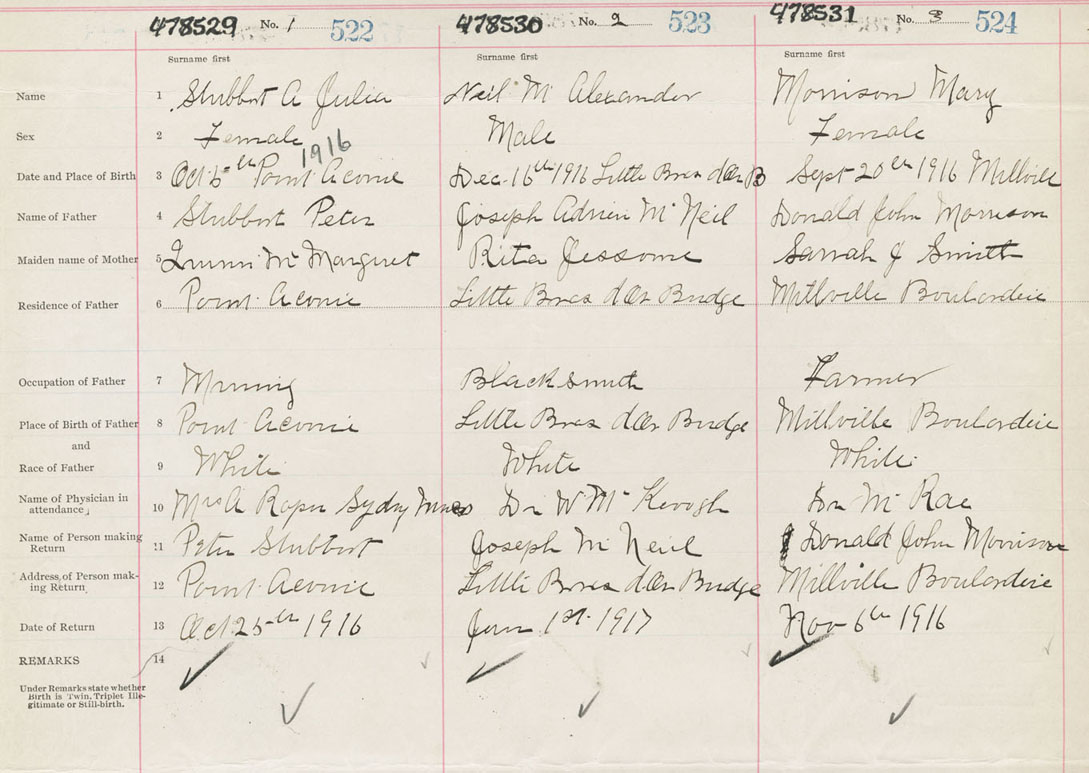 478529 No. 1 522 478530 No. 2 523 478531 No. 3 524
Surname first Surname first Surname first
Name 1 Stubbert A Julia Neil Mc Alexander Morrison Mary
Sex 2 Female Male Female
1916
Date and Place of Birth 3 Oct 5th Point Aconie Dec 16th 1916 Little Bras d'Or B Sept 20th 1916 Millville
Name of Father 4 Stubbert Peter Joseph Adrien Mc Neil Donald John Morrison
Maiden name of Mother 5 Mc Margaret Rita Jessome Sarrah J Smith
Residence of Father 6 Point Aconie Little Bras d'Or Bridge Millville Boularderie
Occupation of Father 7 Mining Blacksmith Farmer
Place of Birth of Father 8 Point Aconie Little Bras d'Or Bridge Millville Boularderie
and
Race of Father 9 White White White
Name of Physician in
attendance 10 Mrs A Roper Sydny Mines Dr W Mc Keough Dr Mc Rae
Name of Person making
Return 11 Peter Stubbert Joseph Mc Neil Donald John Morrison
Address of Person mak-
ing Return 12 Point Aconie Little Bras d'Or Bridge Millville Boularderie
Date of Return 13 Oct 25th 1916 1st 1917 Nov 6th 1916
REMARKS 14
Under Remarks state whether
Birth is Twin, Triplet Ille-
gitimate or Still-birth.